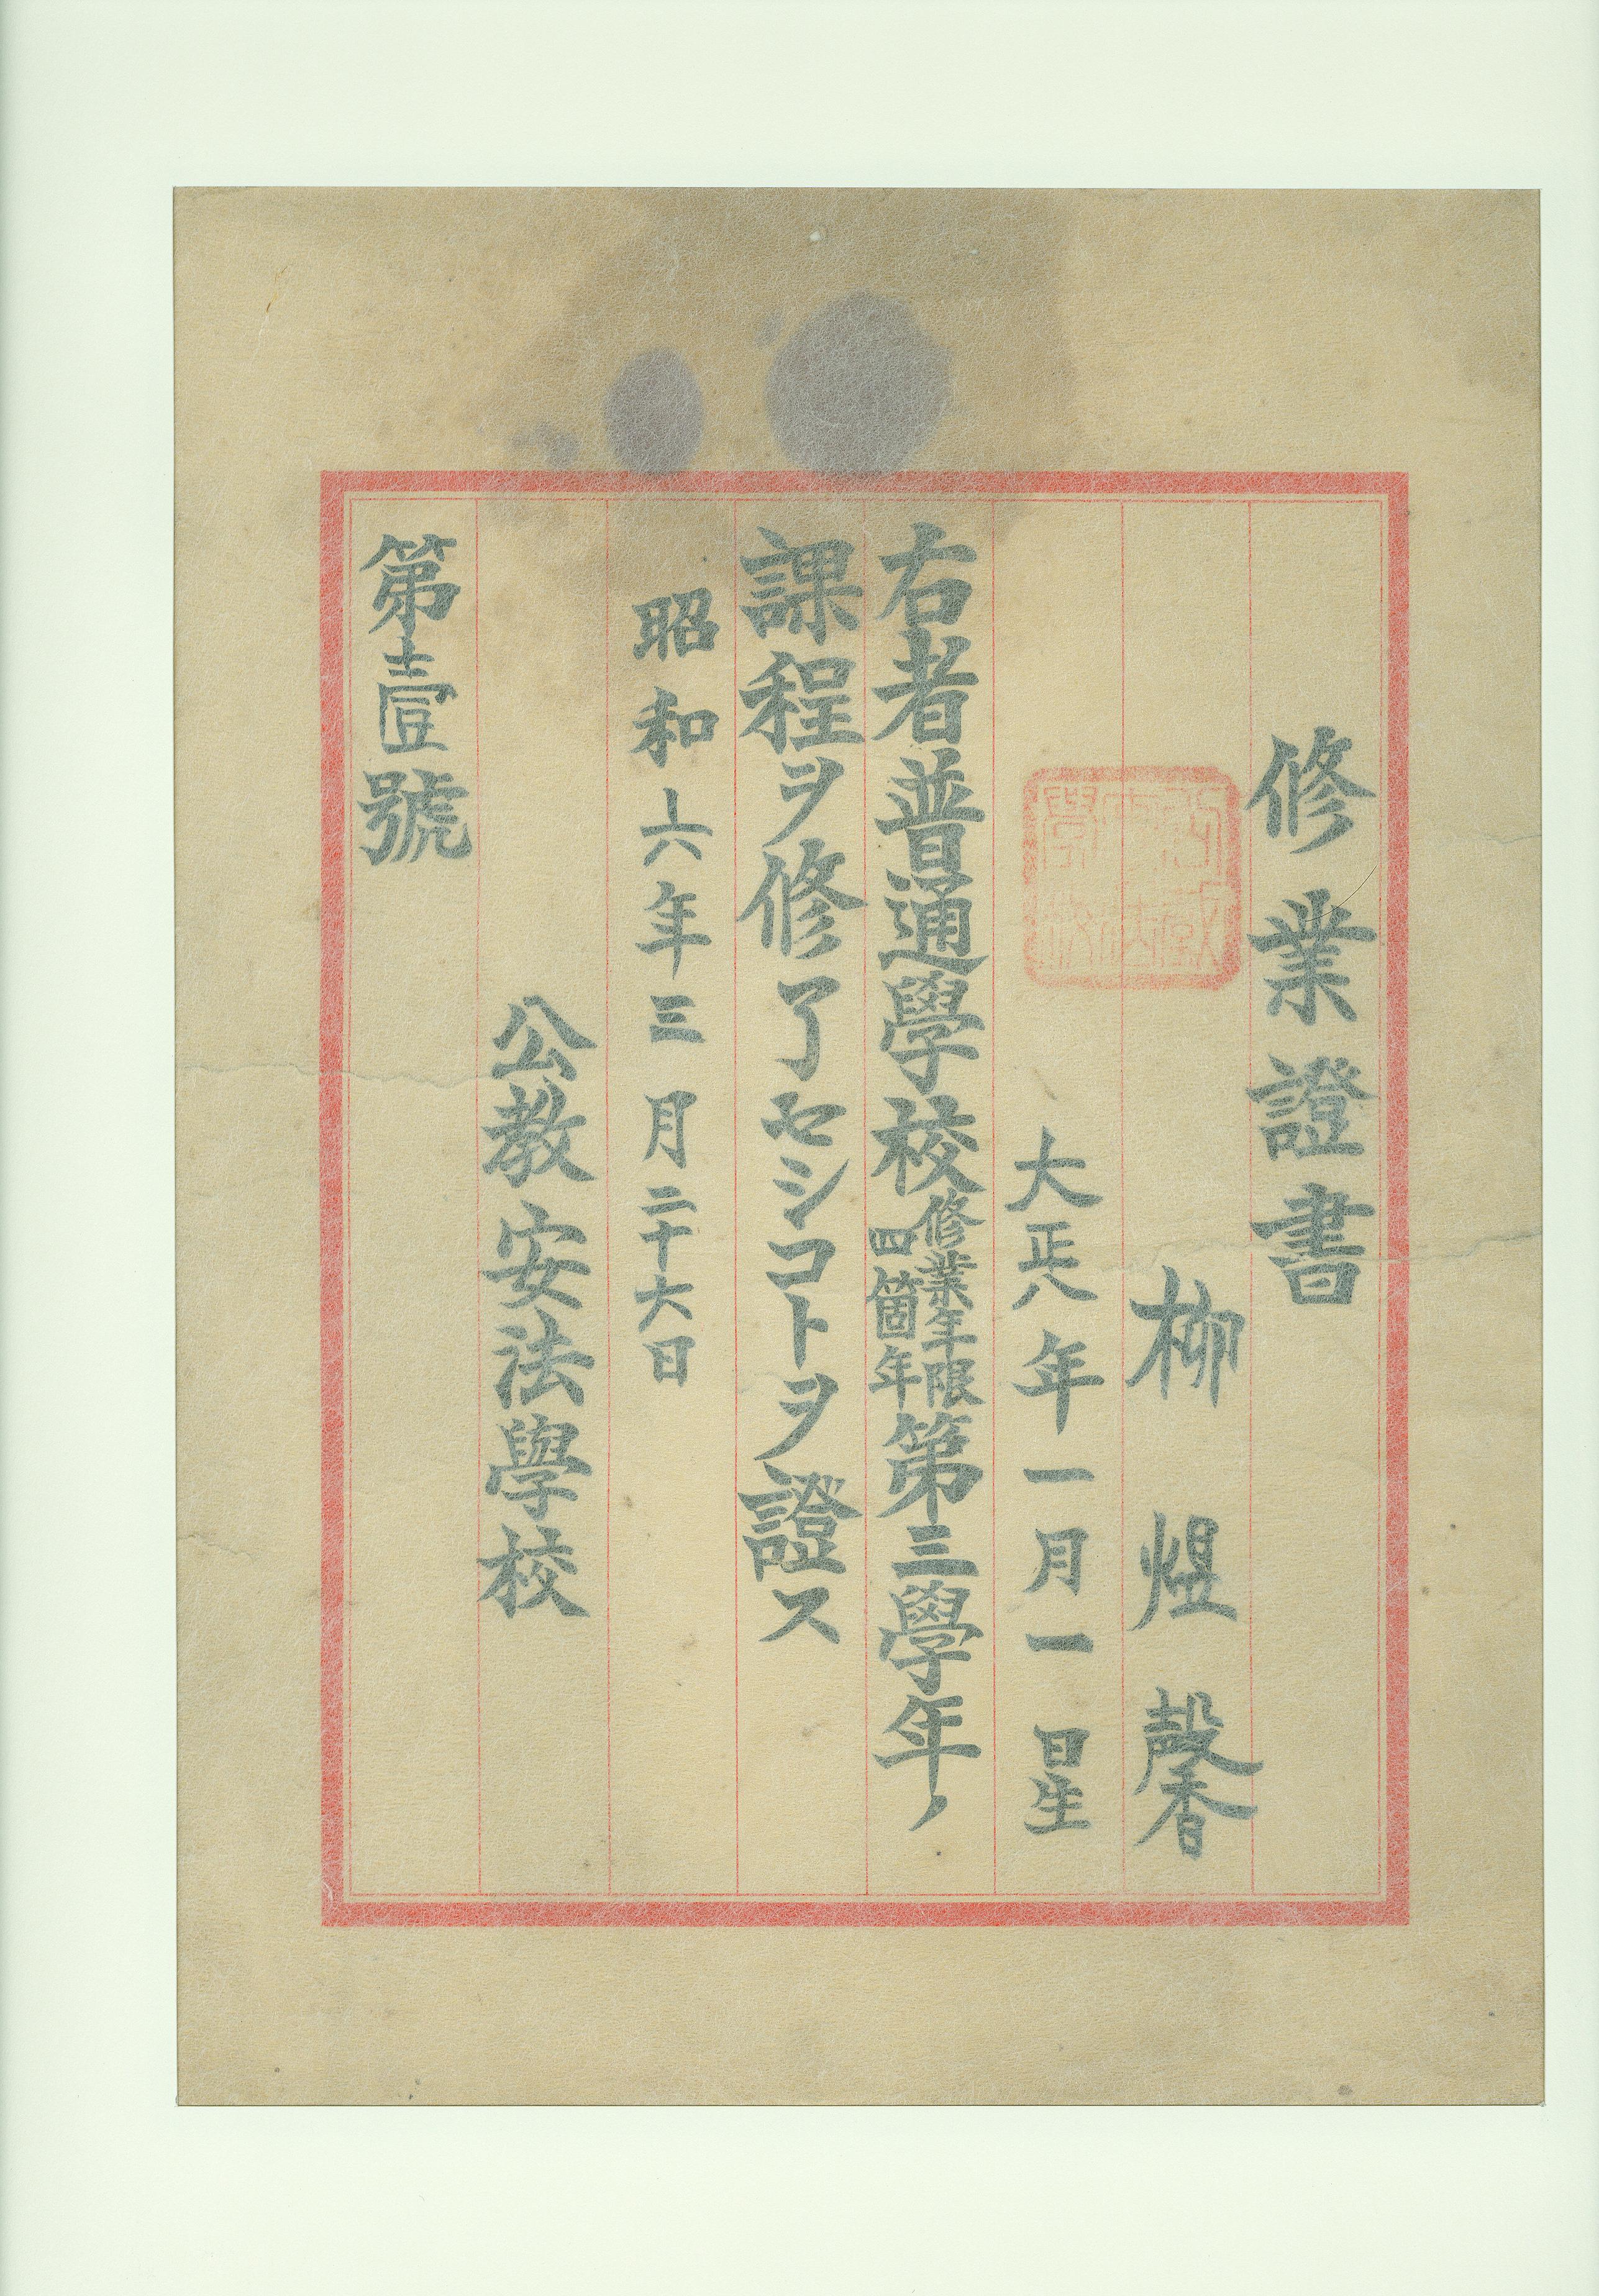 修業證書
柳煜馨
大正八年一月一日生
右者普通學校修業年限四箇年第三學年ノ
課程ヲ修了セシコトヲ證ス
昭和六年三月二十六日
公教安法學校
第壹號